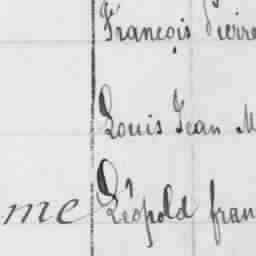 François Pierre
Louis Jean M
me Léopold fran